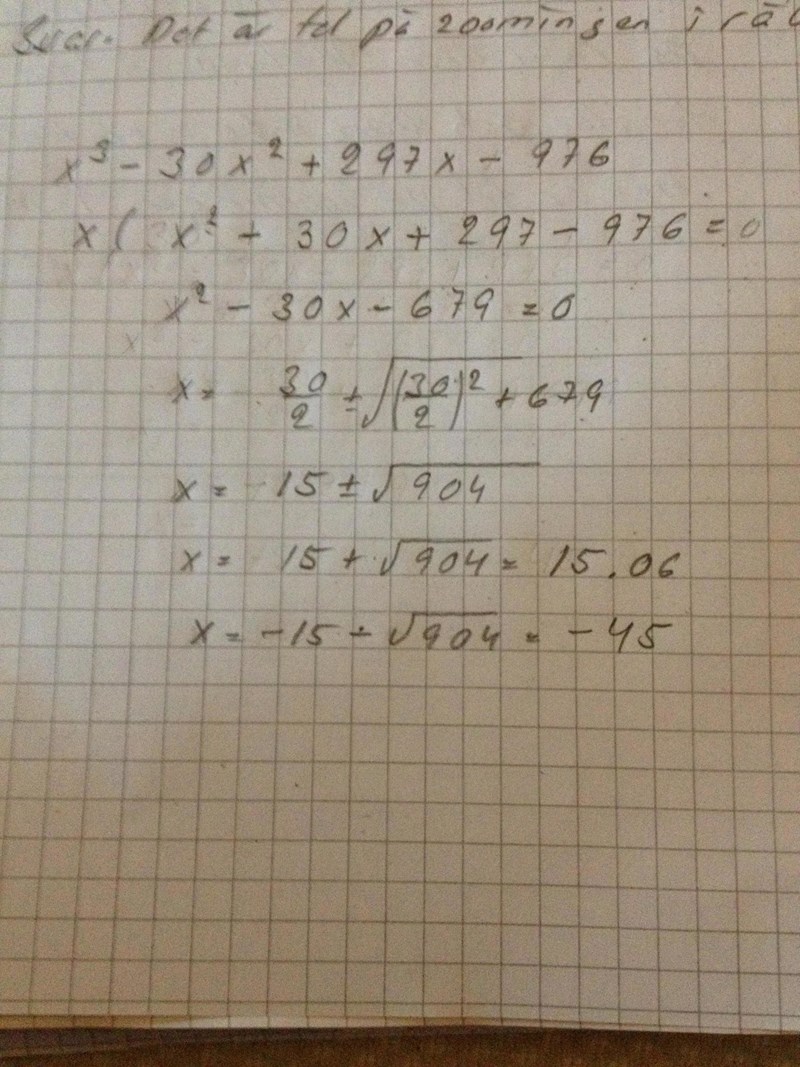 Svar. Det är fel på zoomingen i
x³ - 30x² + 297x - 976
x( x² - 30x + 297 - 976 = 0
x² - 30x - 679 = 0
x = 30/2 ± √(30/2)² + 679
x = 15 ± √904
x = 15 + √904 = 15.06
x = -15 ÷ √904 = -45